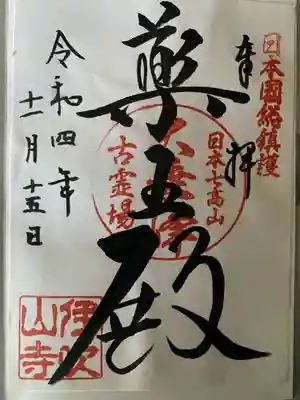 日本國総鎮護
奉拝
藥王殿
日本七高山
古霊場
令和四年
十一月十五日
伊吹
山寺